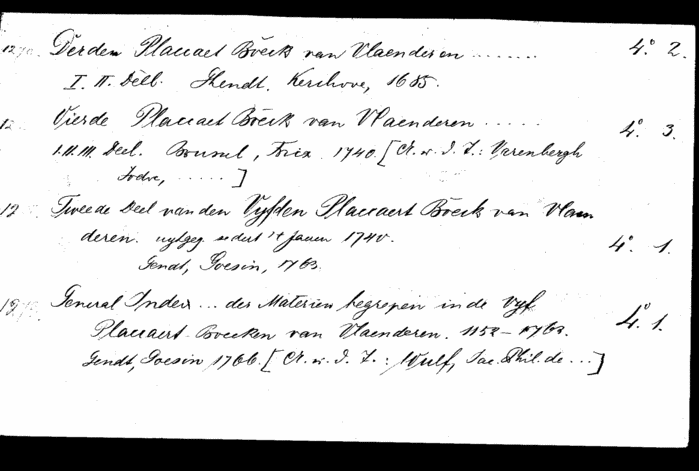 Derden Placcaet Boeck van Vlaenderen ....... 4.° 2.
I. II. Deel. Ghendt. Kerchove, 1685.
Vierde Placcaet Boeck van Vlaenderen ..... 4.° 3.
I.II.III. Deel. Brussel, Fricx. 1740. [A. w. I. T.: Varenbergh
..... ]
12 Tweede Deel van den Vyfden Placcaert Boeck van Vlaen
deren. uytgeg. sedert 't Jaer 1740. 4.° 1.
Gendt, Goesin, 1763.
General Index ... der Materien begrepen in de Vyf 4.° 1.
Placcaert-Boecken van Vlaenderen. 1152 - 1763.
Gendt, Goesin 1766. [A. w. I. T.: Wulf, Jac. Phil. de ...]